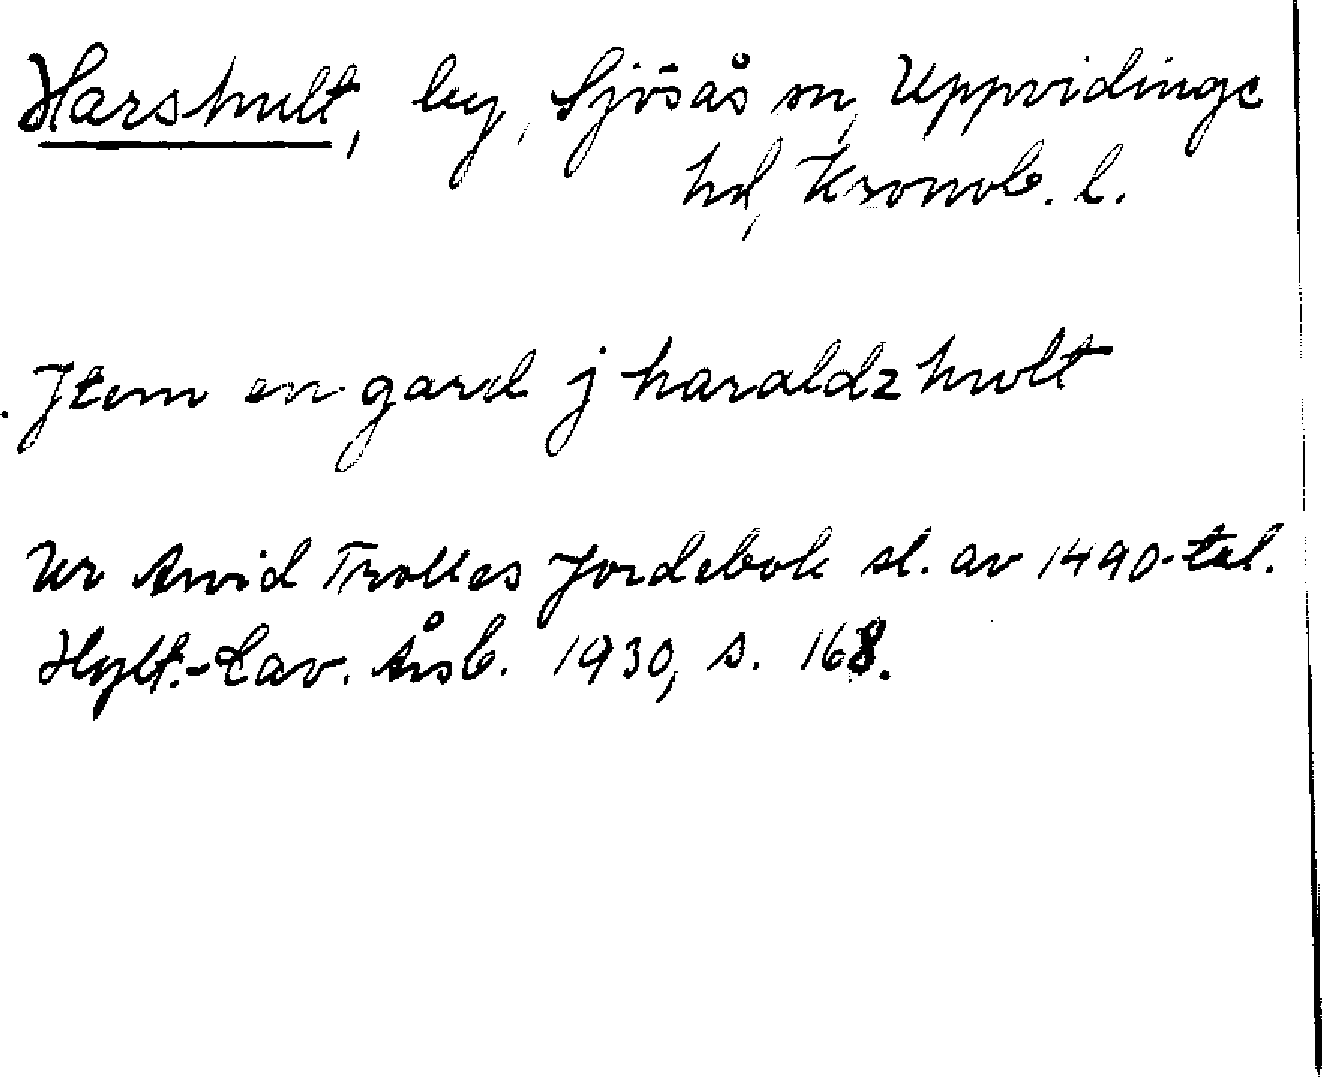 Harshult, by, Sjösås sn, Uppvidinge
hd, Kronob. l.
Jtem en gard j haraldz hwlt
Ur Arvid Trolles Jordebok sl. av 1490-tal.
Hylt.-Cav. Årsb. 1930, s. 168.